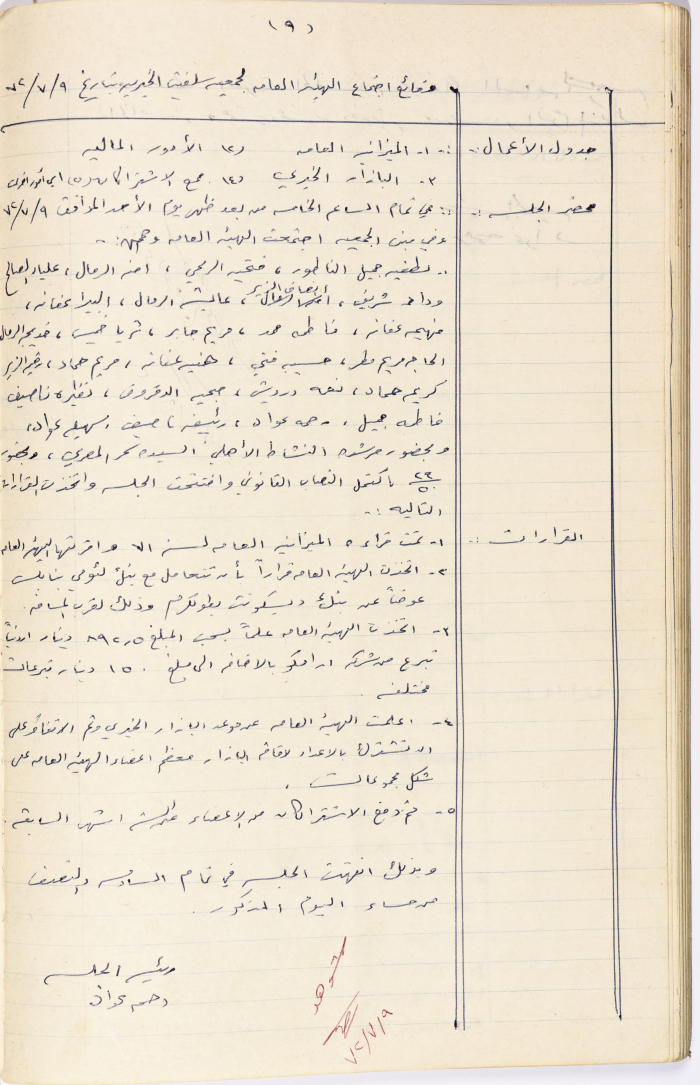 (١٩)
وقائع اجتماع الهيئة العامه لجمعيه سلفيت الخيريه بتاريخ ٩/٧/٧٢
جدول الأعمال :- ١- الميزانيه العامه ٢) الأمور الماليه
٣- البازار الخيري ٤) جمع الاشتراكات ٥) اي أمور اخرى
محضر الجلسه :- في تمام الساعه الخامسه من بعد ظهر يوم الأحد الموافق ٩/٧/٧٢
وفي مبنى الجمعيه اجتمعت الهيئة العامه وهن :-
لطفيه جميل الناطور ، فتحيه ، امنه الرمال ، علياء الصالح
وداد شريف ، عايشه الرمال ، اليرا عفانه ،
فهيمه عفانه ، فاطمه حمد ، مريم جابر ، ثريا خميس ، خديجه الرمال
الحاجه مريم مطر ، حسيبه فتحي ، هنيه عفانه ، مريم حماد ،
كريمه حماد ، نعمه دروش ، صبحيه الدقروق ، نظيره ناصيف
فاطمه جميل ، رحمه عواد ، رئيفه ناصيف ، سهيله عواد ،
وبحضور مرشده النشاط الأهلي السيده سحر المصري ، وبحضور
٢٣/٥٠ اكتمل النصاب القانوني وافتتحت الجلسه واتخذت القرارات
التاليه :-
القرارات :- ١- تمت قراءة الميزانيه العامه لسنه ٧١ واقرتها الهيئة العامه
٢- اتخذت الهيئة العامه قراراً بأن تتعامل مع بنك لئومي بنابلس
عوضاً عن بنك ديسكونت بطولكرم وذلك لقرب المسافه .
٣- اتخذت الهيئة العامه علماً بسحب المبلغ ٨٩٢٫٥ دينار اردنياً
تبرع من شركه ارامكو بالاضافه الى مبلغ ١٥٠ دينار تبرعات
مختلفه .
٤- اعلمت الهيئة العامه عن موعد البازار الخيري وتم الاتفاق على
ان تشترك بالاعداد لاقامة البازار معظم اعضاء الهيئة العامه على
شكل مجموعات .
٥- تم دفع الاشتراكات من الاعضاء عن اشهر السابقه .
وبذلك انتهت الجلسه في تمام السادسه والنصف
من مساء اليوم المذكور .
رئيسة الجلسه
رحمه عواد
شوهد
٩/٧/٧٢